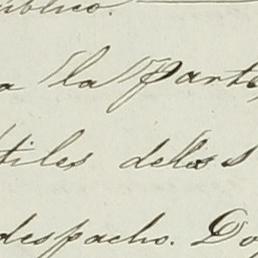 ublico.
a la Parte
tiles delos
despacho. Do